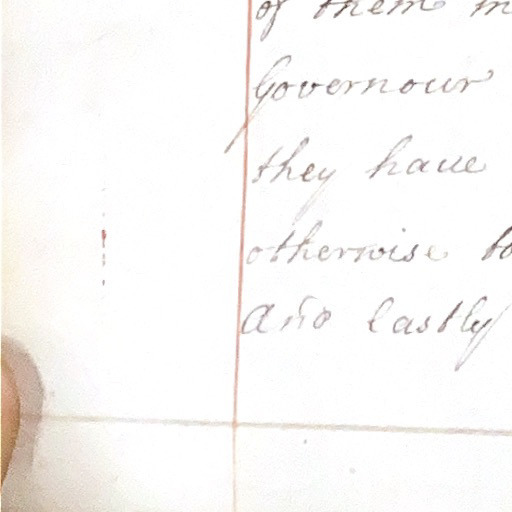 of them
Governour
they haue
otherwise
And lastly